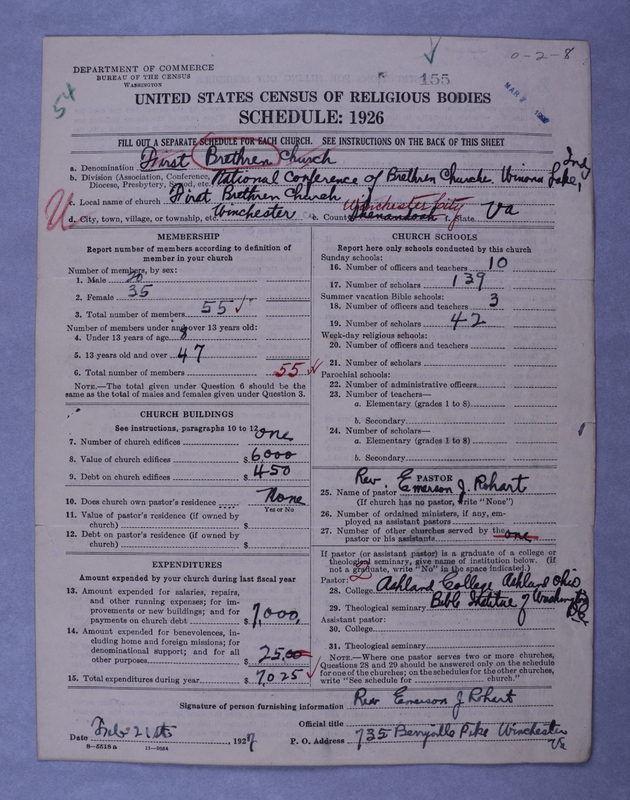 0-2-8
155
MAR 2
54
DEPARTMENT OF COMMERCE
BUREAU OF THE CENSUS
WASHINGTON
UNITED STATES CENSUS OF RELIGIOUS BODIES
SCHEDULE: 1926
FILL OUT A SEPARATE SCHEDULE FOR EACH CHURCH. SEE INSTRUCTIONS ON THE BACK OF THIS SHEET
a. Denomination First Brethren Church
b. Division (Association, Conference, Diocese, Presbytery, Synod, etc. National Conference of Brethren Churche. Winona Lake, Ind
c. Local name of church First Brethren Church
d. City, town, village, or township, etc. Winchester e. County Shenandoah Winchester City f. State Va
U
MEMBERSHIP
Report number of members according to definition of
member in your church
Number of members, by sex:
1. Male 20
2. Female 35
3. Total number of members 55 ✓
Number of members under and over 13 years old:
4. Under 13 years of age 8
5. 13 years old and over 47
6. Total number of members 55 ✓
NOTE.—The total given under Question 6 should be the
same as the total of males and females given under Question 3.
CHURCH BUILDINGS
See instructions, paragraphs 10 to 12
7. Number of church edifices one
8. Value of church edifices $ 6,000
9. Debt on church edifices $ 450
10. Does church own pastor's residence None
Yes or No
11. Value of pastor's residence (if owned by
church) $
12. Debt on pastor's residence (if owned by
church) $
EXPENDITURES
Amount expended by your church during last fiscal year
13. Amount expended for salaries, repairs,
and other running expenses; for im-
provements or new buildings; and for
payments on church debt $ 7,000,
14. Amount expended for benevolences, in-
cluding home and foreign missions; for
denominational support; and for all
other purposes $ 25.00
15. Total expenditures during year $ 7,025 ✓
CHURCH SCHOOLS
Report here only schools conducted by this church
Sunday schools:
16. Number of officers and teachers 10
17. Number of scholars 139
Summer vacation Bible schools:
18. Number of officers and teachers 3
19. Number of scholars 42
Week-day religious schools:
20. Number of officers and teachers
21. Number of scholars
Parochial schools:
22. Number of administrative officers
23. Number of teachers—
a. Elementary (grades 1 to 8)
b. Secondary
24. Number of scholars—
a. Elementary (grades 1 to 8)
b. Secondary
PASTOR
25. Name of pastor Rev. Emerson J. Rohart
(If church has no pastor, write "None")
26. Number of ordained ministers, if any, em-
ployed as assistant pastors
27. Number of other churches served by the
pastor or his assistants one
If pastor (or assistant pastor) is a graduate of a college or
theological seminary, give name of institution below. (If
not a graduate, write "No" in the space indicated.)
Pastor: 2
28. College Ashland College Ashland Ohio
29. Theological seminary Bible Institue of Washington DC
Assistant pastor:
30. College
31. Theological seminary
NOTE.—Where one pastor serves two or more churches,
Questions 28 and 29 should be answered only on the schedule
for one of the churches; on the schedules for the other churches,
write "See schedule for church."
Signature of person furnishing information Rev Emerson J Rohart
Official title
Date Feb 21st, 1927 P. O. Address 735 Berryville Pike Winchester Va
8-5518a 11-9064